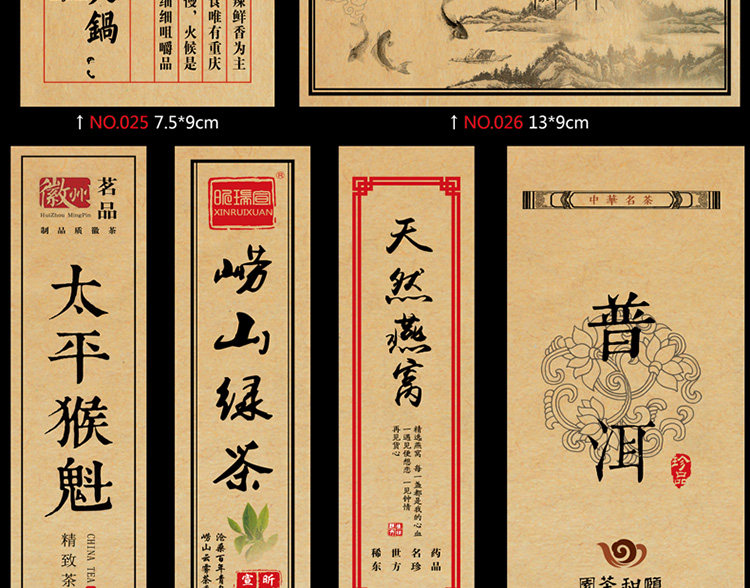 火鍋
辣鲜香为主
食唯有重庆
慢，火候是
细细咀嚼品
↑ NO.025 7.5*9cm
↑ NO.026 13*9cm
徽州
茗品
HuiZhou MingPin
制品质徽茶
太平猴魁
精致茶
CHINA TEA
昕瑞宣
®
XINRUIXUAN
崂山绿茶
沧桑百年青
崂山云雾茶
宣昕
天然燕窝
精选燕窝 每一盏都是我的心血
一遇见便想恋 一见钟情
再见赏心
稀世名药
东方珍品
中華名茶
普洱
珍品
頤和茶園